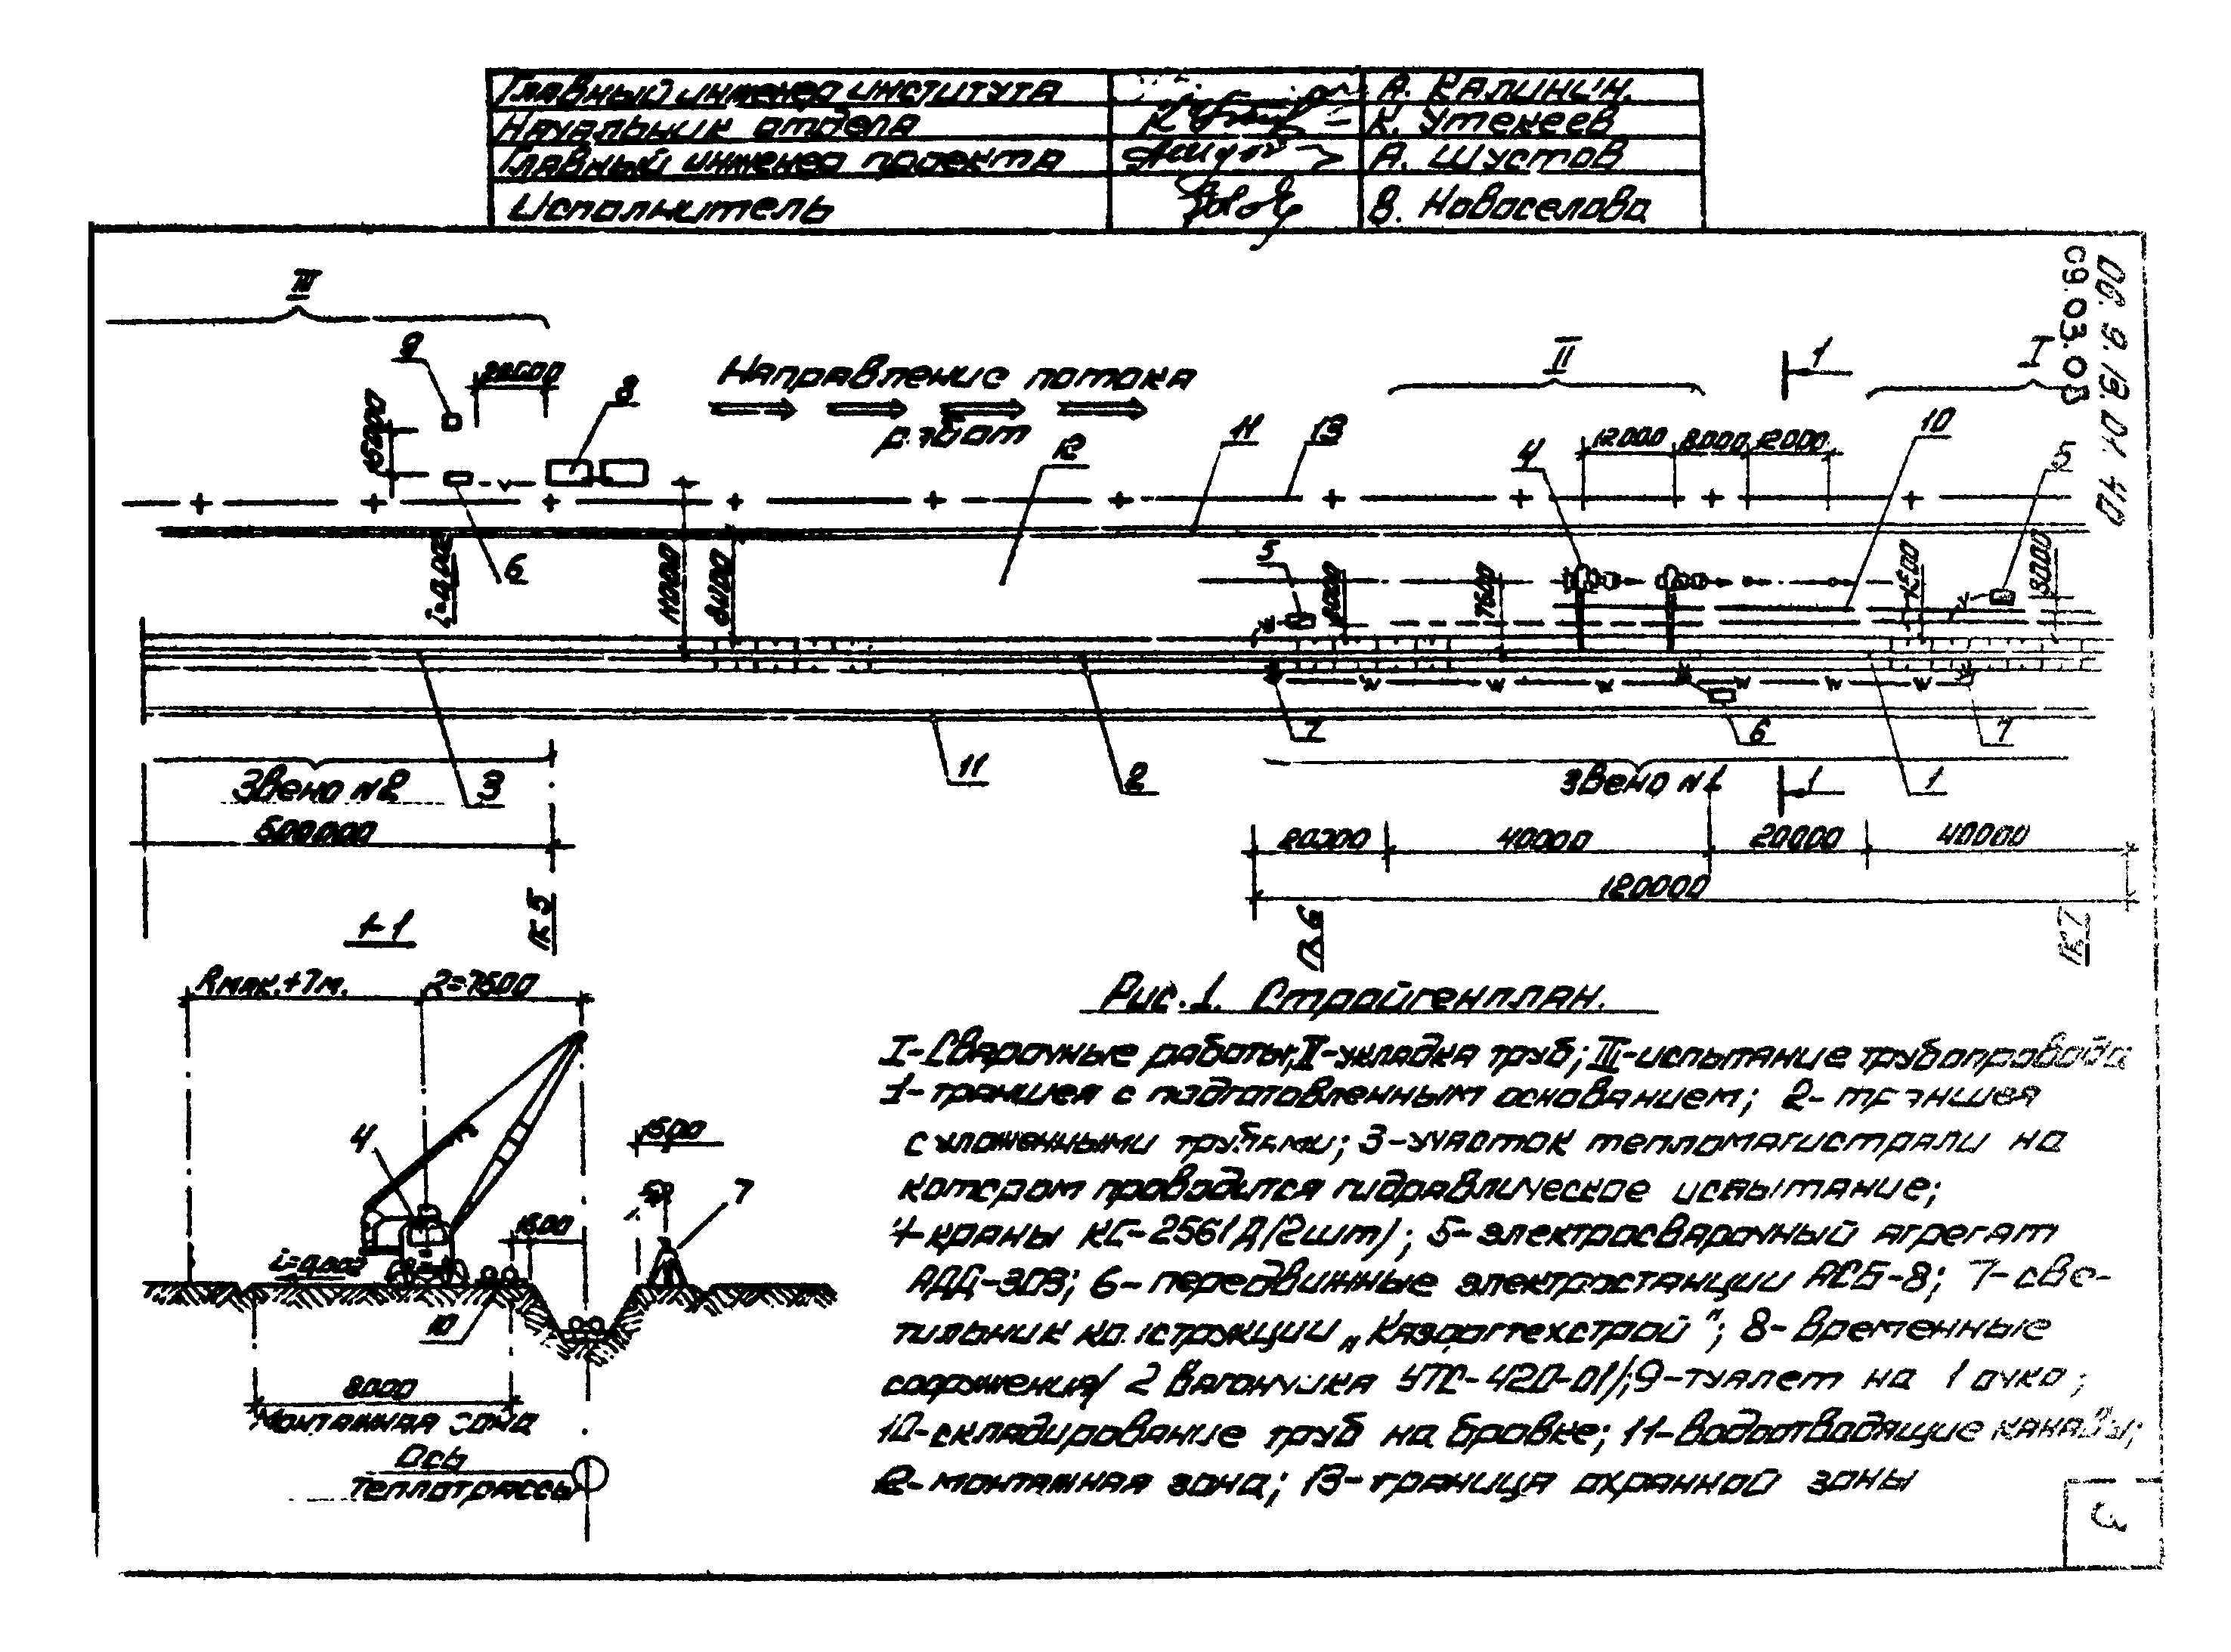 Главный инженер института А. Калинин.
Начальник отдела К. Утекеев
Главный инженер проекта А. Шустов
Исполнитель В. Новоселова
09.03.08
06.9.13.01.40
III
9
8
15000
Направление потока
работ
II
1
I
12
11
13
4
12000 8000 12000
10
5
i=0,002
6
11000
8400
5
7500
1500
3000
7
6
7
Звено №2
3
11
2
Звено №1
1
1
500000
20000 40000 20000 40000
120000
ПК 5
ПК 6
ПК 7
1-1
Rмак.+7м. 2=7500
4
1500
7
1500
i=0,002
10
8000
Монтажная зона
Ось
теплотрассы
Рис.1. Стройгенплан.
I-Сварочные работы; II-укладка труб; III-испытание трубопровода
1-траншея с подготовленным основанием; 2-траншея
с уложенными трубами; 3-участок тепломагистрали на
котором проводится гидравлическое испытание;
4-краны КС-2561Д/2шт/; 5-электросварочный агрегат
АДД-303; 6-передвижные электростанции АСБ-8; 7-све-
тильник конструкции „Казоргтехстрой"; 8-временные
сооружения/ 2 вагончика УТС-420-01/; 9-туалет на 1 очко;
10-складирование труб на бровке; 11-водоотводящие канавы;
12-монтажная зона; 13-граница охранной зоны
3